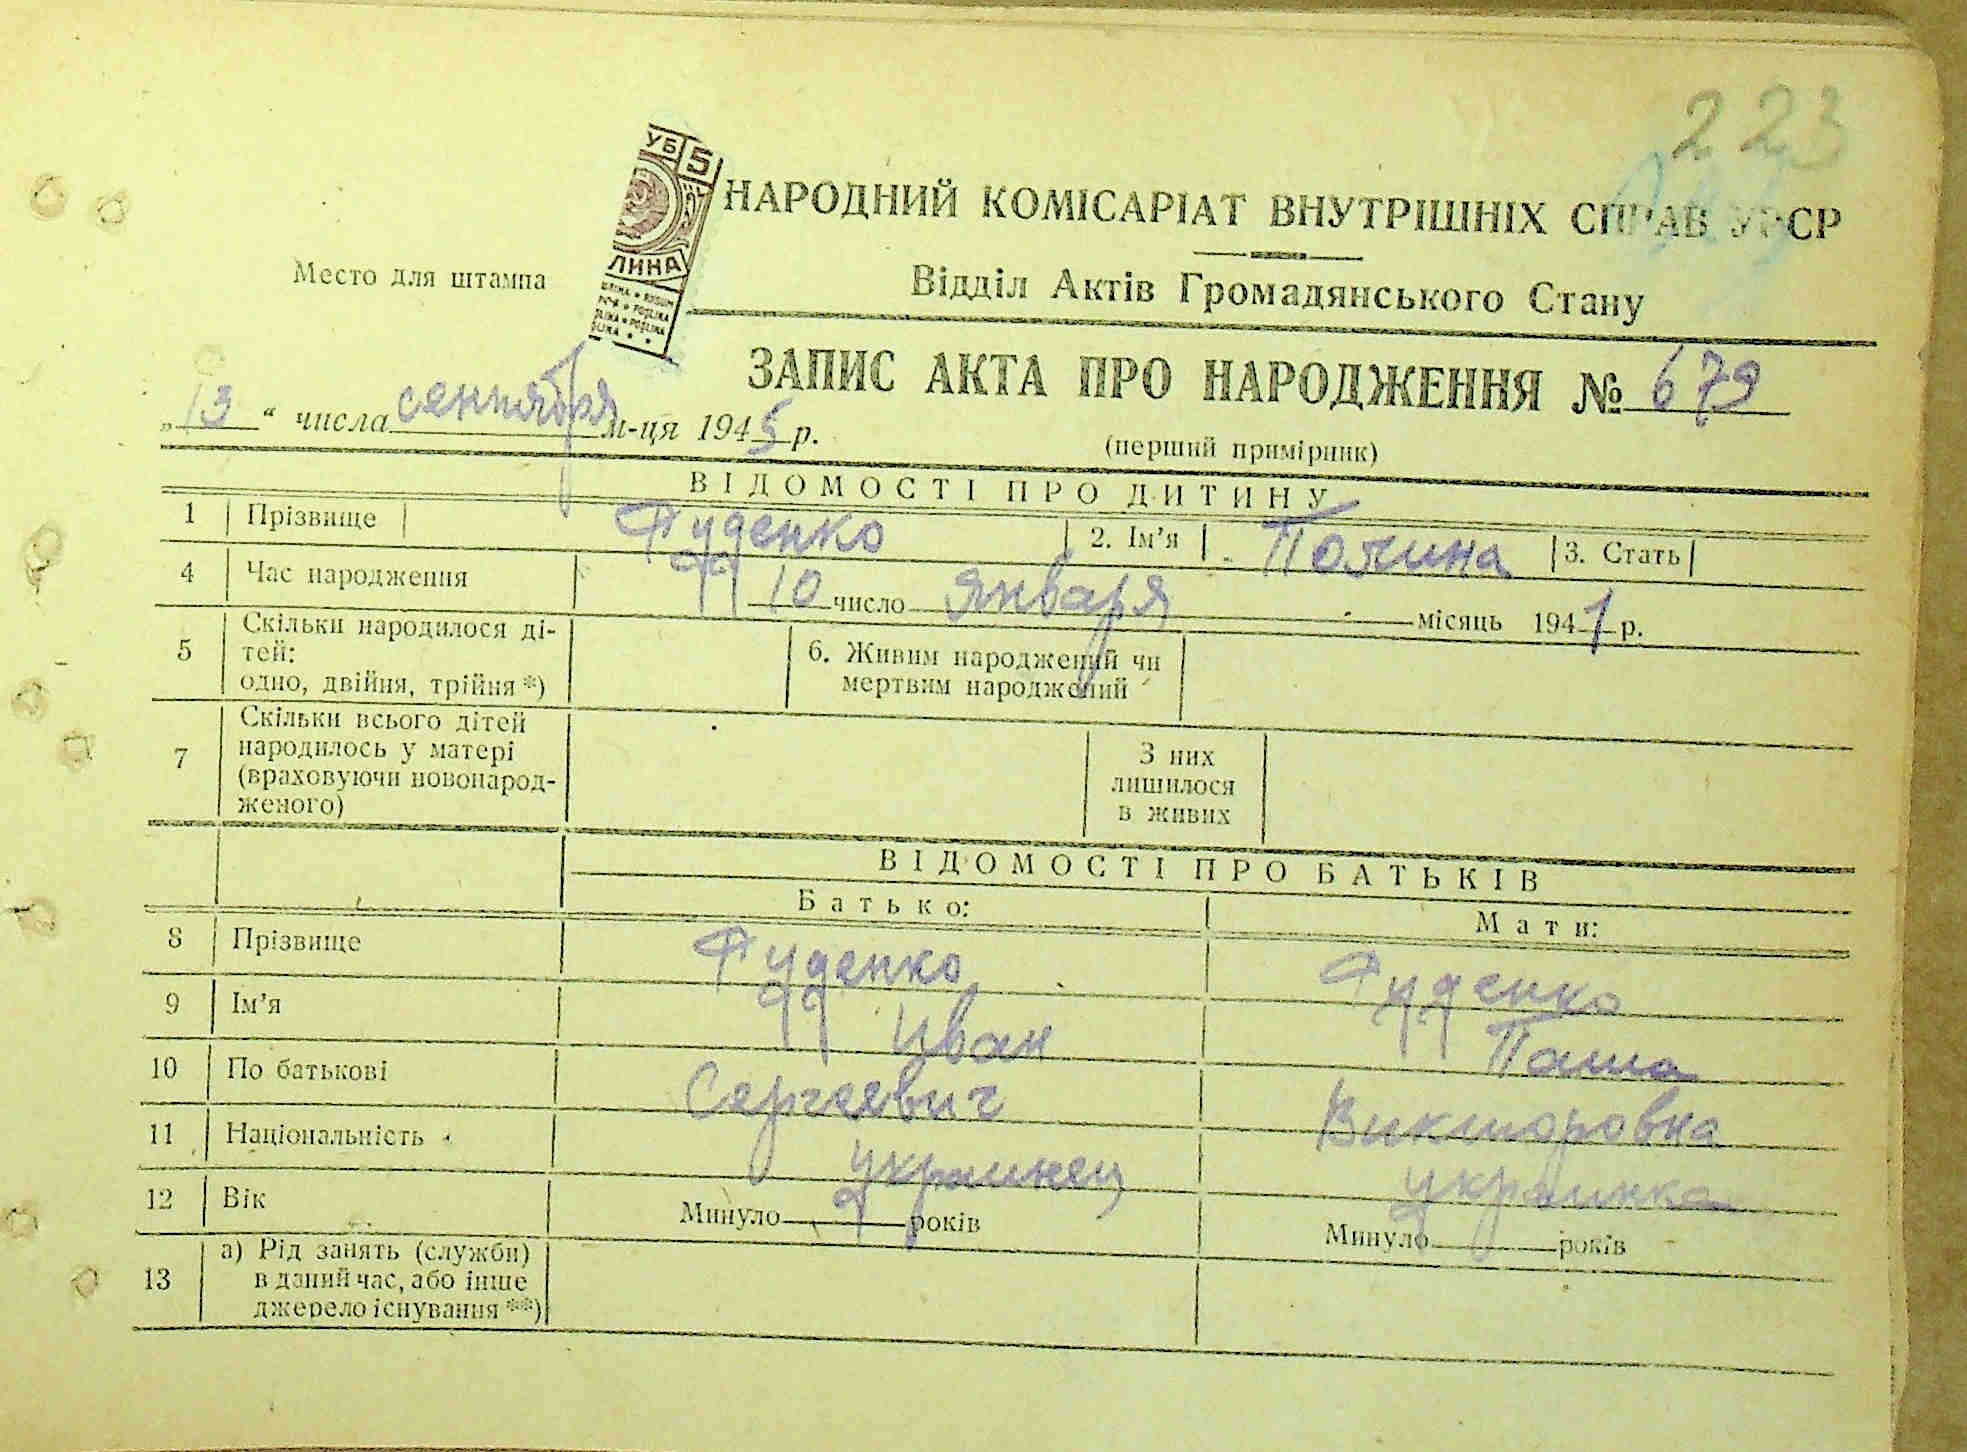 223
УБ 5
ЛИНА
НАРОДНИЙ КОМІСАРІАТ ВНУТРІШНІХ СПРАВ УРСР
Место для штампа
Відділ Актів Громадянського Стану
ЗАПИС АКТА ПРО НАРОДЖЕННЯ № 679
„13“ числа сентября м-ця 1945 р.
(перший примірник)
ВІДОМОСТІ ПРО ДИТИНУ
1 Прізвище Руденко 2. Ім'я Полина 3. Стать
4 Час народження 10 число января місяць 1941 р.
5 Скільки народилося ді-
тей:
одно, двійня, трійня *)
6. Живим народжений чи
мертвим народжений
7 Скільки всього дітей
народилось у матері
(враховуючи новонарод-
женого)
З них
лишилося
в живих
ВІДОМОСТІ ПРО БАТЬКІВ
Батько: Мати:
8 Прізвище Руденко Руденко
9 Ім'я Иван Паша
10 По батькові Сергеевич Викторовна
11 Національність украинец украинка
12 Вік Минуло років Минуло років
13 а) Рід занять (служби)
в даний час, або інше
джерело існування **)